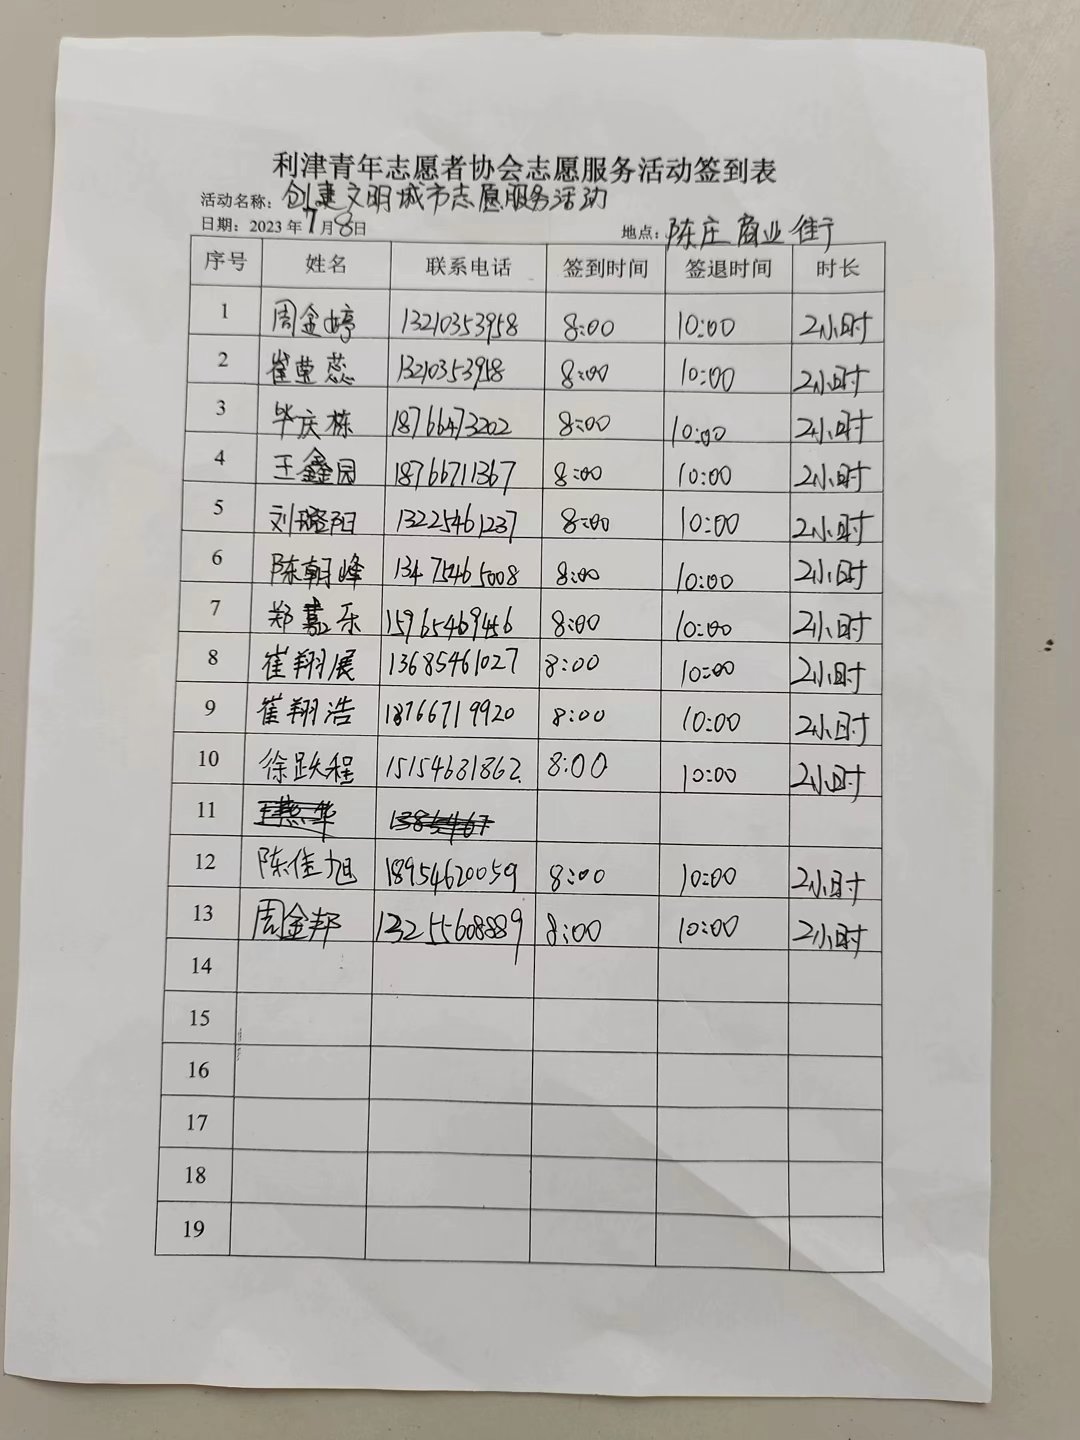 利津青年志愿者协会志愿服务活动签到表
活动名称：创建文明城市志愿服务活动
日期：2023年7月8日 地点：陈庄商业街
序号 姓名 联系电话 签到时间 签退时间 时长
1 周金婷 13210353958 8:00 10:00 2小时
2 崔莹蕊 13210353958 8:00 10:00 2小时
3 毕庆栋 18766473202 8:00 10:00 2小时
4 王鑫园 18766711367 8:00 10:00 2小时
5 刘璐阳 13225461237 8:00 10:00 2小时
6 陈朝峰 13475465008 8:00 10:00 2小时
7 郑嘉乐 15965469456 8:00 10:00 2小时
8 崔翔展 13685461027 8:00 10:00 2小时
9 崔翔浩 18766719920 8:00 10:00 2小时
10 徐跃程 15154631862 8:00 10:00 2小时
11
12 陈佳旭 18954620059 8:00 10:00 2小时
13 周金邦 13255608889 8:00 10:00 2小时
14
15
16
17
18
19